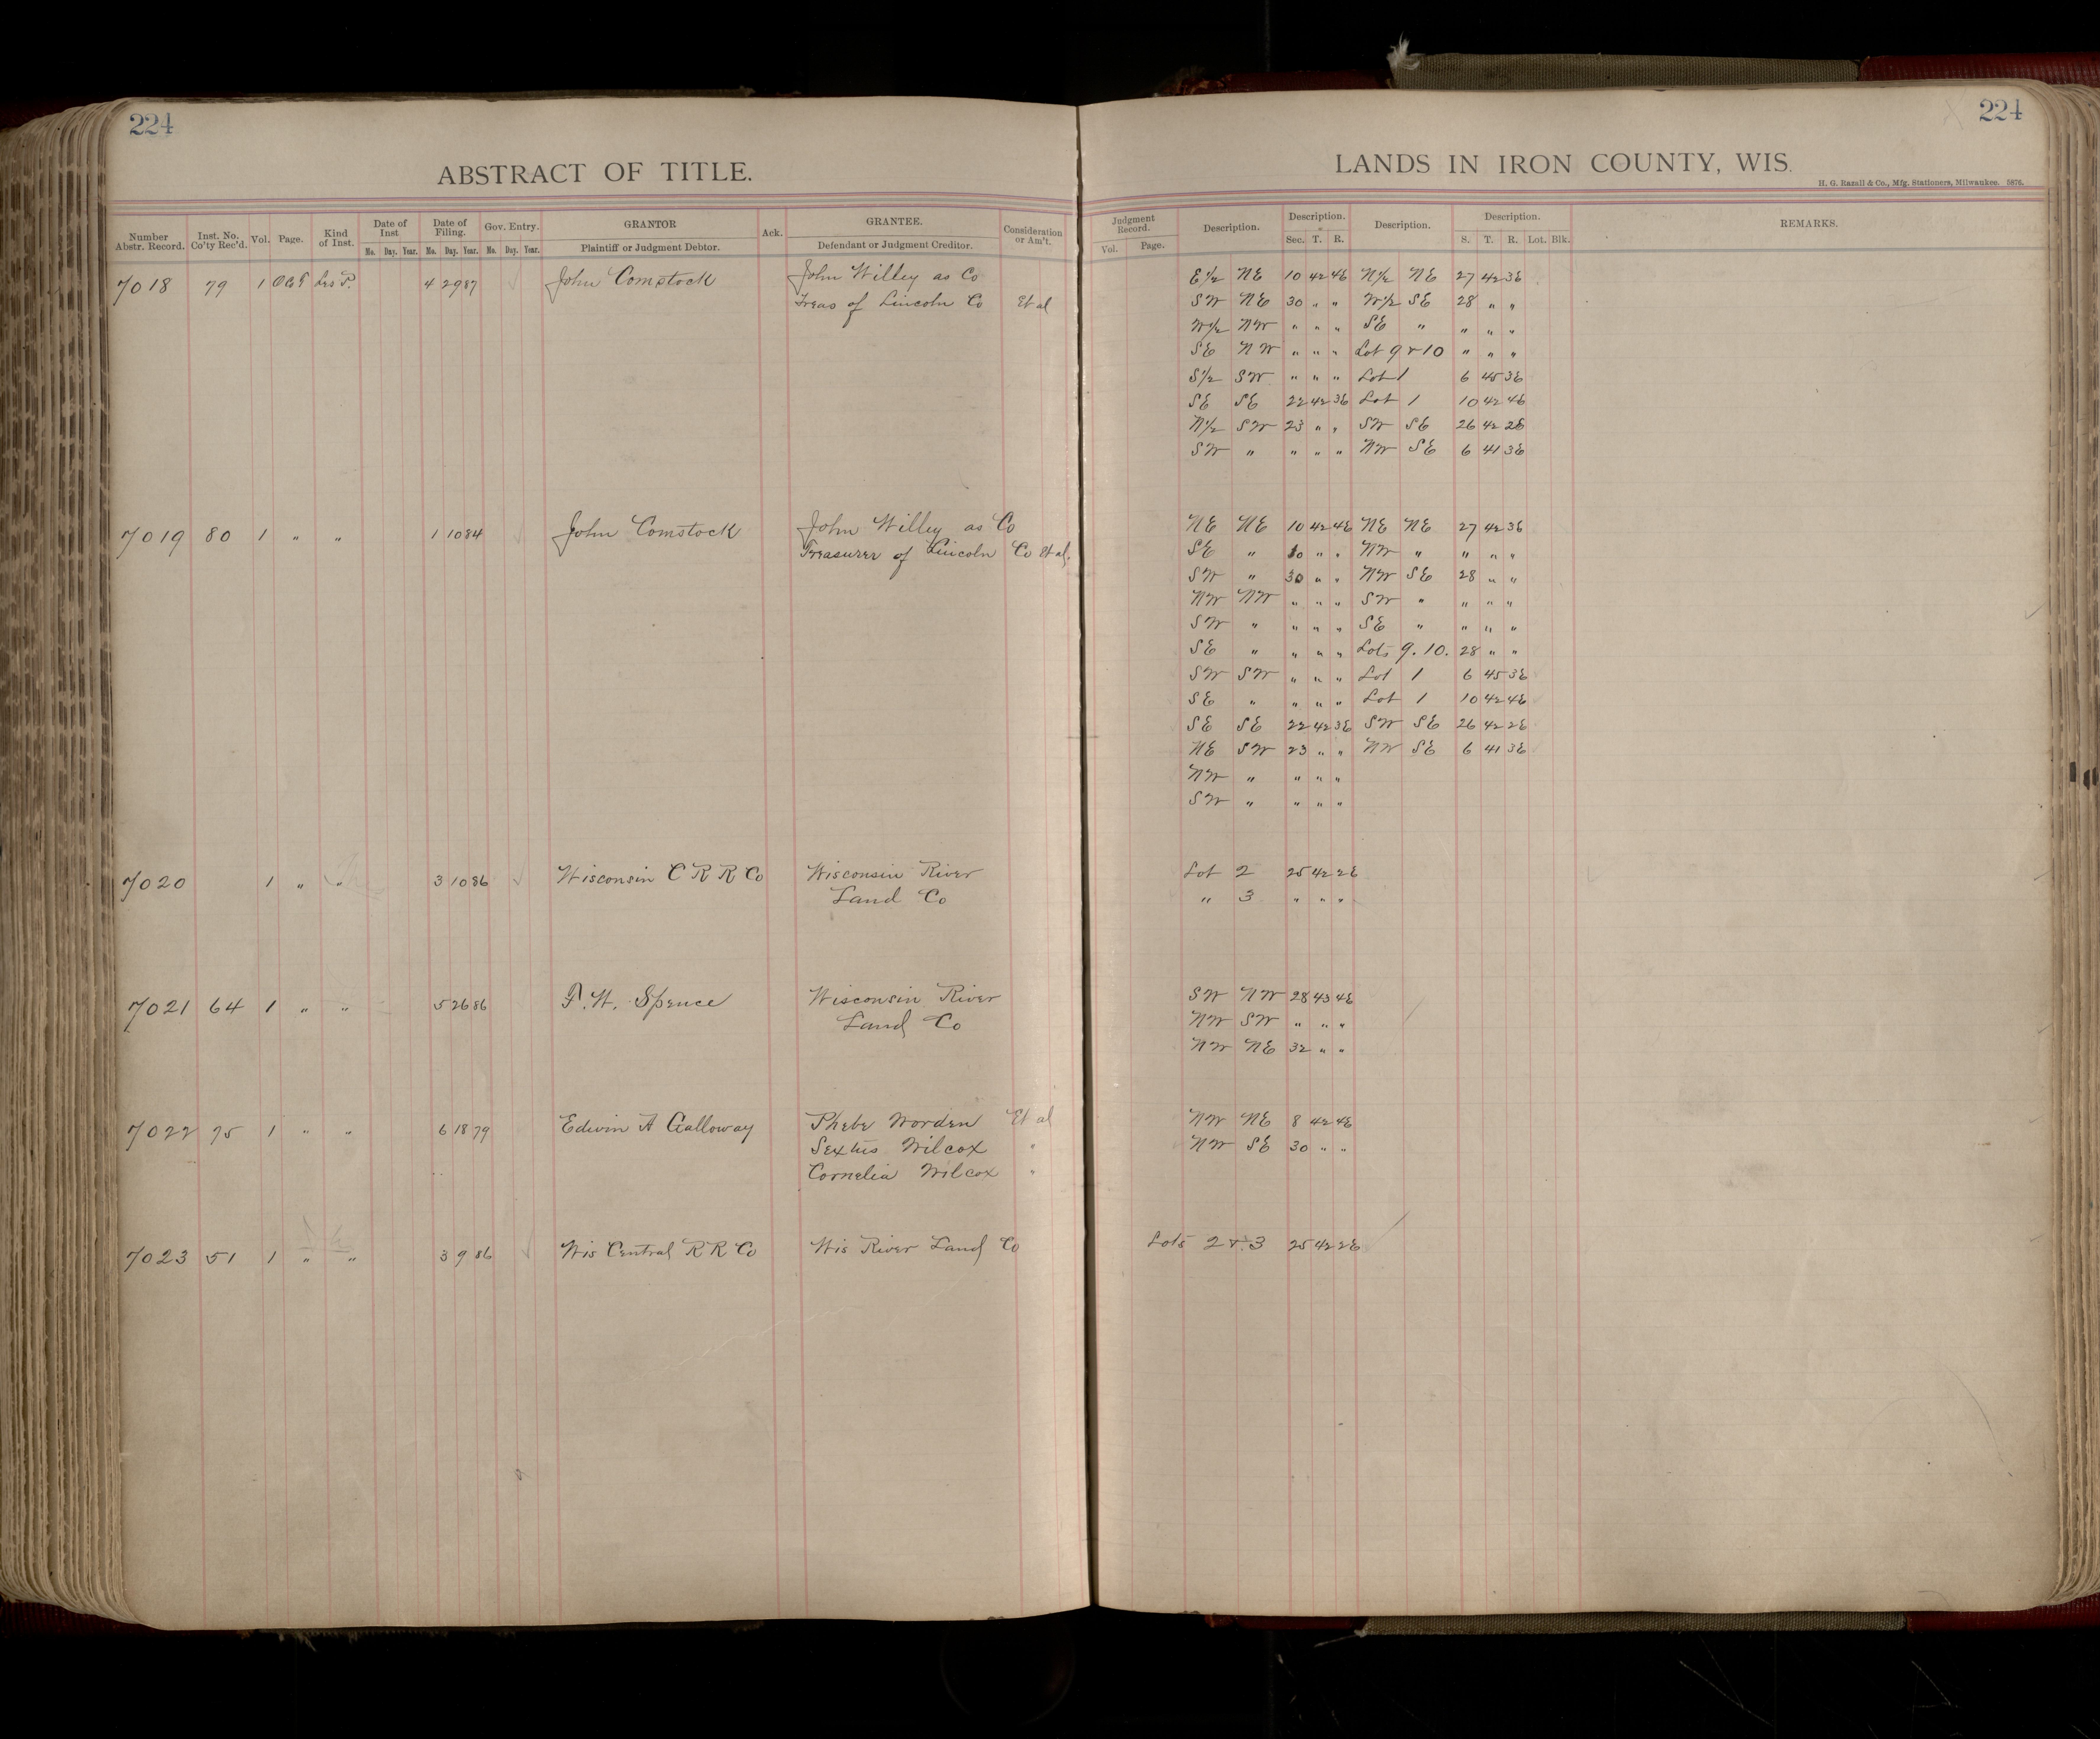 224
224
ABSTRACT OF TITLE.
LANDS IN IRON COUNTY, WIS.
H. G. Razall & Co., Mfg. Stationers, Milwaukee. 5876.
Number Abstr. Record. Inst. No. Co'ty Rec'd. Vol. Page. Kind of Inst. Date of Inst Mo. Day. Year. Date of Filing. Mo. Day. Year. Gov. Entry. Mo. Day. Year. GRANTOR Plaintiff or Judgment Debtor. Ack. GRANTEE. Defendant or Judgment Creditor. Consideration or Am't.
Judgment Record. Vol. Page. Description. Description. Sec. T. R. Description. Description. S. T. R. Lot. Blk. REMARKS.
7018 79 1 4 29 87 John Comstock John Willey as Co E 1/2 NE 10 42 4E N 1/2 NE 27 42 3E
Treas of Lincoln Co Et al SW NE 30 " " W 1/2 SE 28 " "
W 1/2 NW " " " SE " " " "
SE NW " " " Lot 9 & 10 " " "
S 1/2 SW " " " Lot 1 6 45 3E
SE SE 22 42 3E Lot 1 10 42 4E
N 1/2 SW 23 " " SW SE 26 42 2E
SW " " " " NW SE 6 41 3E
7019 80 1 " " 1 10 84 John Comstock John Willey as Co NE NE 10 42 4E NE NE 27 42 3E
Treasurer of Lincoln Co Et al. SE " 10 " " NW " " " "
SW " 30 " " NW SE 28 " "
NW NW " " " SW " " " "
SW " " " " SE " " " "
SE " " " " Lots 9. 10. 28 " "
SW SW " " " Lot 1 6 45 3E
SE " " " " Lot 1 10 42 4E
SE SE 22 42 3E SW SE 26 42 2E
NE SW 23 " " NW SE 6 41 3E
NW " " " "
SW " " " "
7020 1 " " 3 10 86 Wisconsin C R R Co Wisconsin River Lot 2 25 42 2E
Land Co " 3 " " "
7021 64 1 " " 5 26 86 Spence Wisconsin River SW NW 28 43 4E
Land Co NW SW " " "
NW NE 32 " "
7022 75 1 " " 6 18 79 Edwin A Galloway Phebe Worden Et al NW NE 8 42 4E
Sextus Wilcox " NW SE 30 " "
Cornelia Wilcox "
7023 51 1 " " 3 9 86 Wis Central R R Co Wis River Land Co Lots 2 & 3 25 42 2E